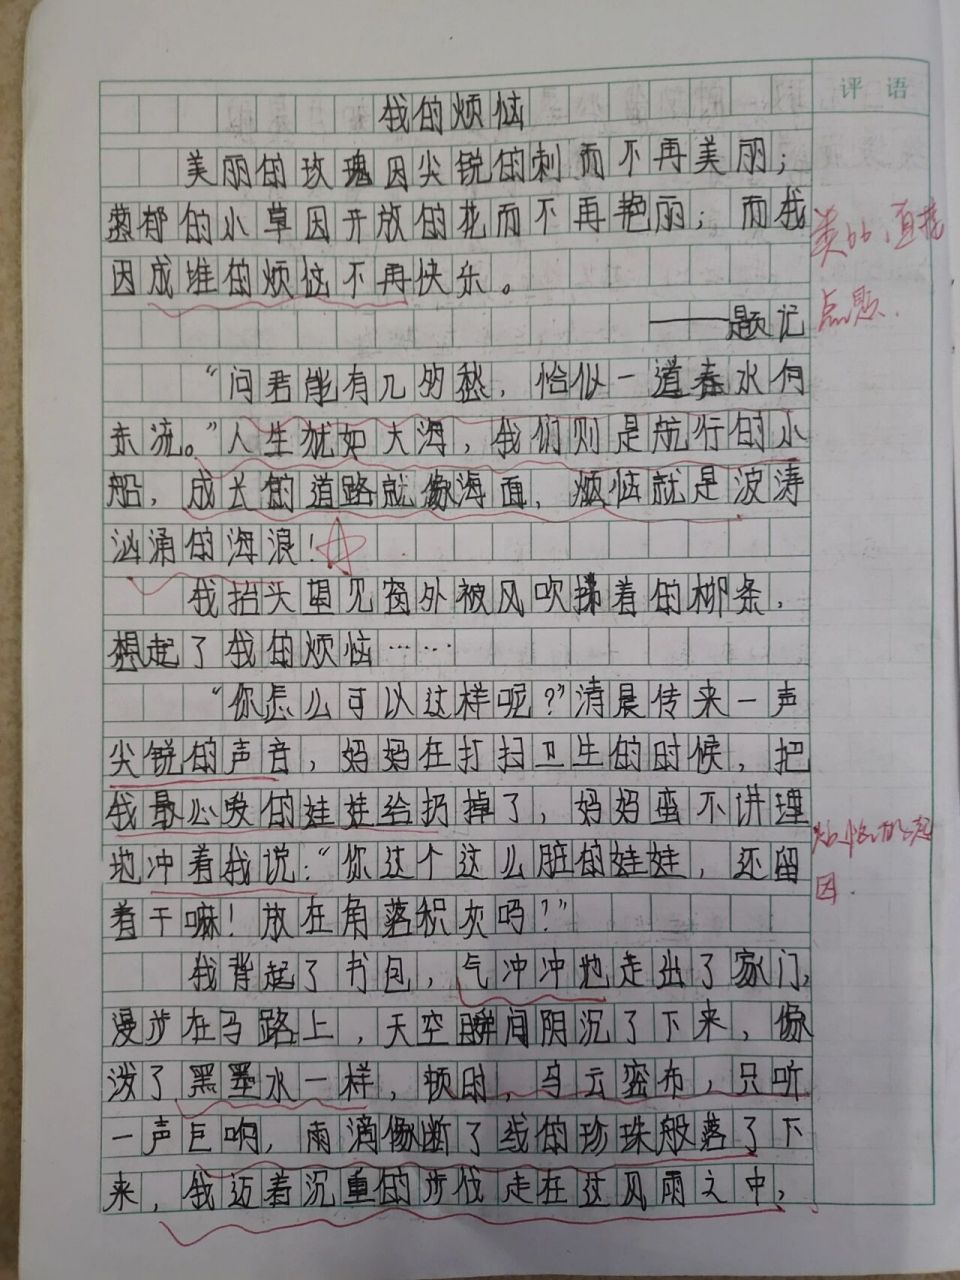 我的烦恼
评语
美丽的玫瑰因尖锐的刺而不再美丽；
葱郁的小草因开放的花而不再艳丽；而我
因成堆的烦恼不再快乐。
——题记
点题.
“问君能有几多愁，恰似一道春水向
东流。”人生犹如大海，我们则是航行的小
船，成长的道路就像海面，烦恼就是波涛
汹涌的海浪！
我抬头望见窗外被风吹拂着的柳条，
想起了我的烦恼……
“你怎么可以这样呢？”清晨传来一声
尖锐的声音，妈妈在打扫卫生的时候，把
我最心爱的娃娃给扔掉了，妈妈蛮不讲理
地冲着我说：“你这个这么脏的娃娃，还留
着干嘛！放在角落积灰吗？”
因.
我背起了书包，气冲冲地走出了家门，
漫步在马路上，天空瞬间阴沉了下来，像
泼了黑墨水一样，顿时，乌云密布，只听
一声巨响，雨滴像断了线的珍珠般落了下
来，我迈着沉重的步伐走在这风雨之中，